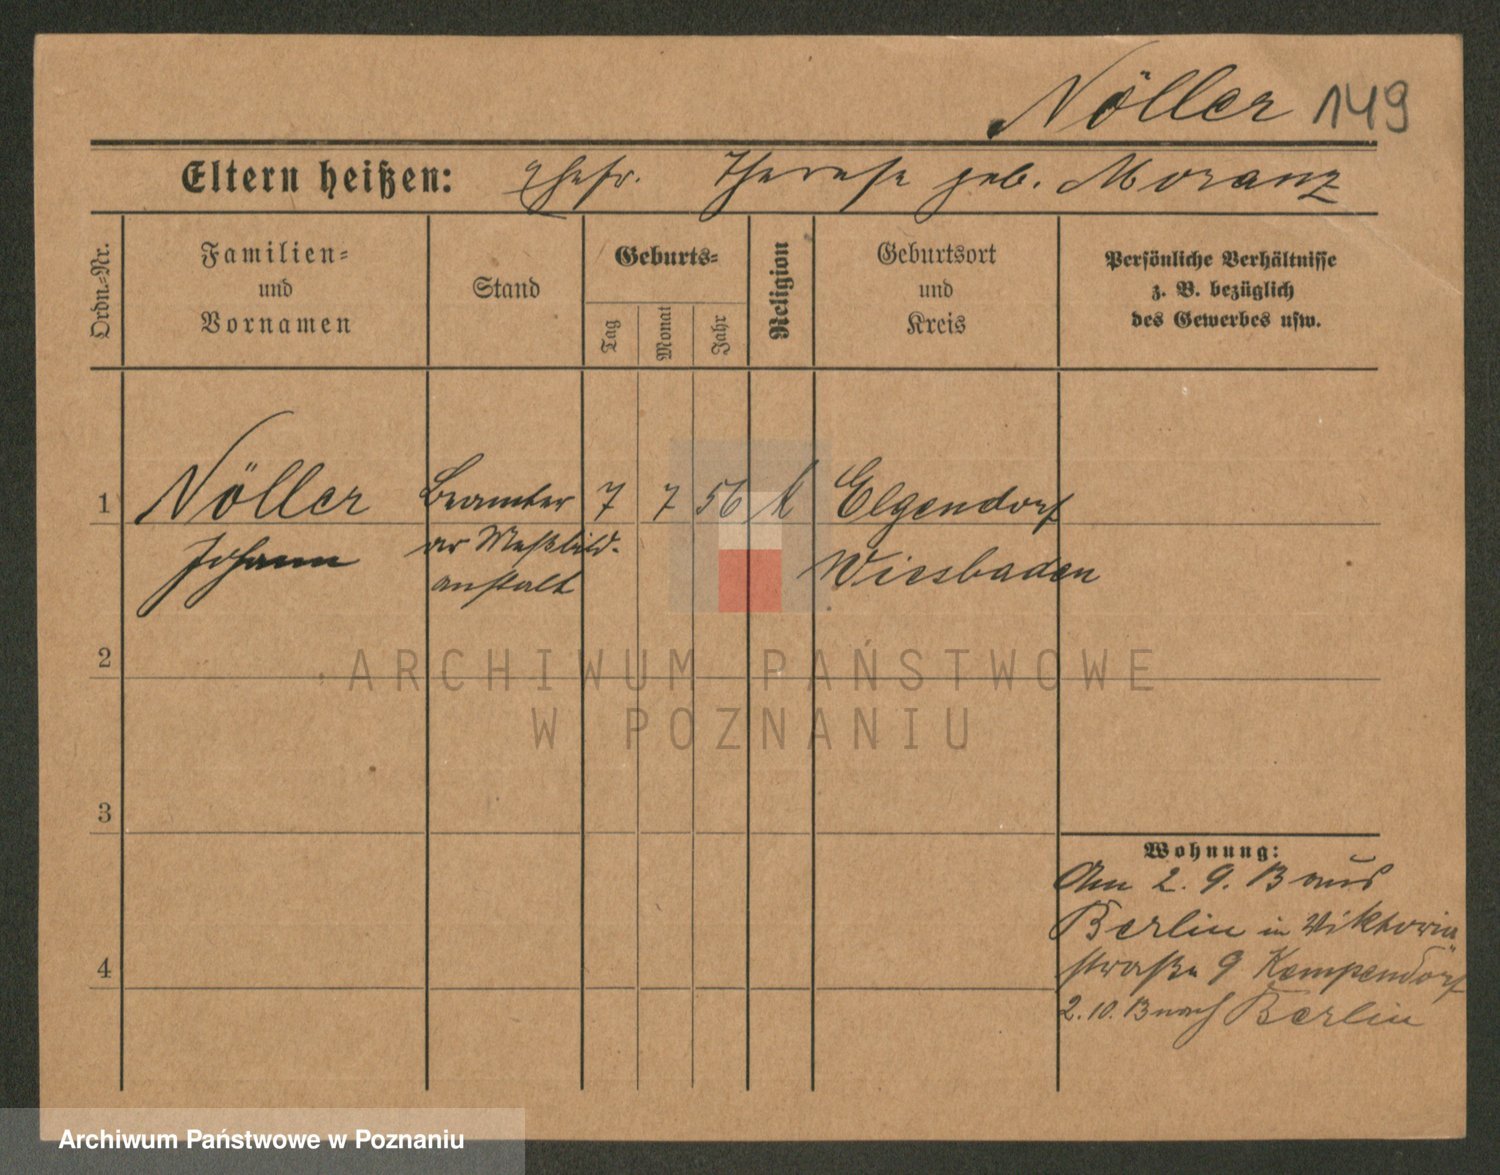 Nöller 149
Eltern heißen: Ehefr. Therese geb. Moranz
Ordn.-Nr.
Familien-
und
Vornamen
Stand
Geburts-
Tag
Monat
Jahr
Religion
Geburtsort
und
Kreis
Persönliche Verhältnisse
z. B. bezüglich
des Gewerbes usw.
1 Nöller Beamter 7 7 56 k Elgendorf
Johann der Meßbild- Wiesbaden
anstalt
ARCHIWUM PAŃSTWOWE
W POZNANIU
2
3
4
Wohnung:
Am 2. 9. 13 aus
Berlin in Viktoria
straße 9 Kempendörf
2. 10. 13 nach Berlin
Archiwum Państwowe w Poznaniu